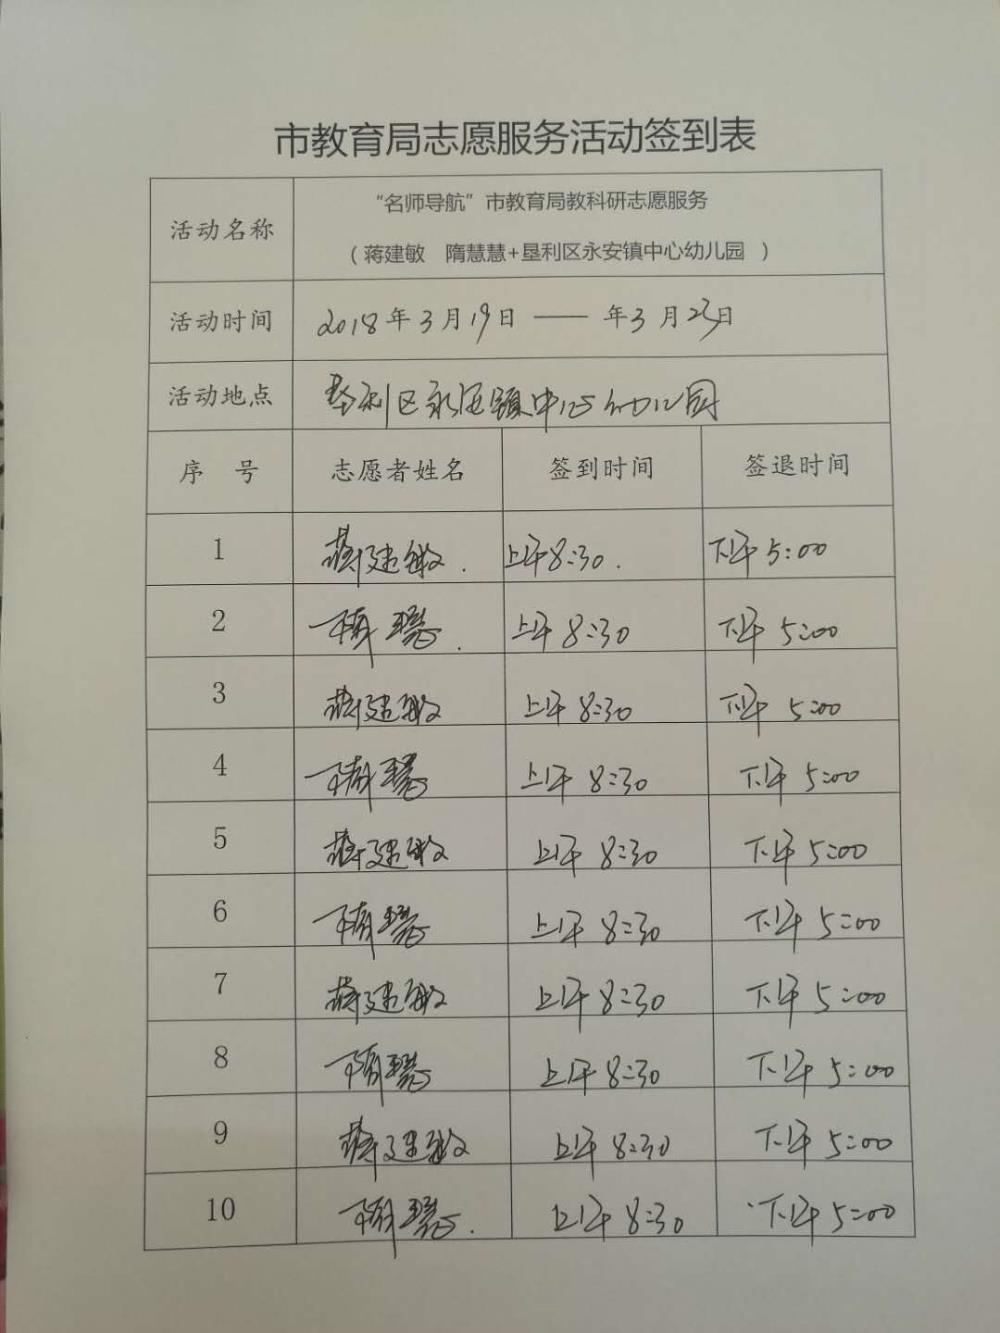 市教育局志愿服务活动签到表
活动名称
“名师导航”市教育局教科研志愿服务
（蒋建敏 隋慧慧+垦利区永安镇中心幼儿园 ）
活动时间 2018年3月19日 —— 年3月23日
活动地点 垦利区永安镇中心幼儿园
序 号 志愿者姓名 签到时间 签退时间
1 蒋建敏. 上午8:30. 下午5:00
2 隋慧慧. 上午8:30 下午5:00
3 蒋建敏 上午8:30 下午5:00
4 隋慧慧 上午8:30 下午5:00
5 蒋建敏 上午8:30 下午5:00
6 隋慧慧 上午8:30 下午5:00
7 蒋建敏 上午8:30 下午5:00
8 隋慧慧 上午8:30 下午5:00
9 蒋建敏 上午8:30 下午5:00
10 隋慧慧. 上午8:30 下午5:00